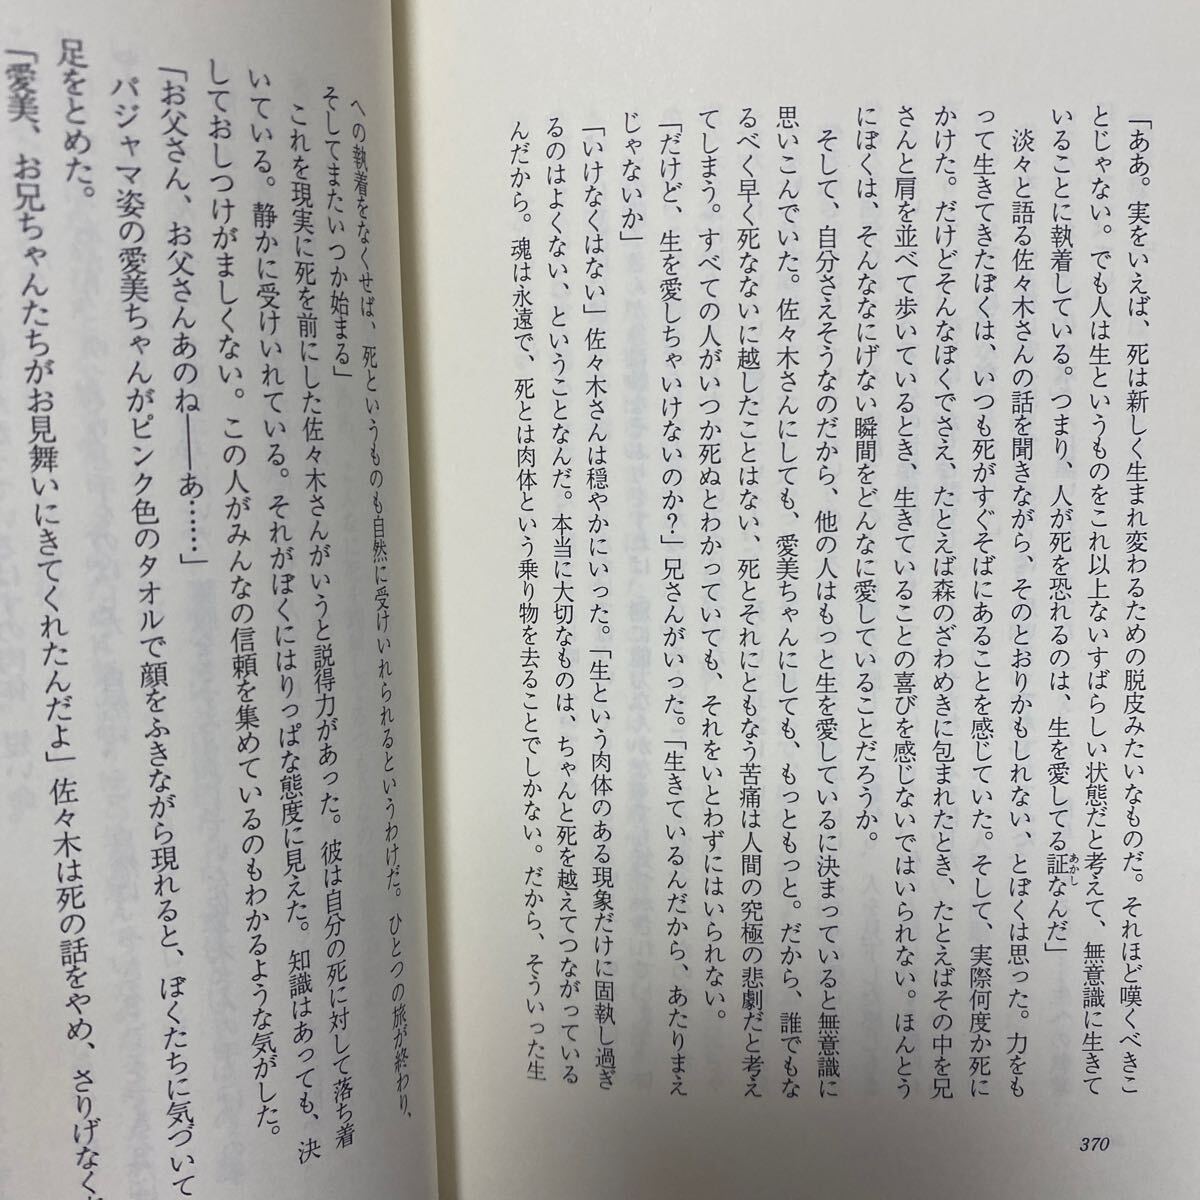 「ああ。実をいえば、死は新しく生まれ変わるための脱皮みたいなものだ。それほど嘆くべきこ
とじゃない。でも人は生というものをこれ以上ないすばらしい状態だと考えて、無意識に生きて
いることに執着している。つまり、人が死を恐れるのは、生を愛してる証なんだ」
あかし
淡々と語る佐々木さんの話を聞きながら、そのとおりかもしれない、とぼくは思った。力をも
って生きてきたぼくは、いつも死がすぐそばにあることを感じていた。そして、実際何度か死に
かけた。だけどそんなぼくでさえ、たとえば森のざわめきに包まれたとき、たとえばその中を兄
さんと肩を並べて歩いているとき、生きていることの喜びを感じないではいられない。ほんとう
にぼくは、そんななにげない瞬間をどんなに愛していることだろうか。
そして、自分さえそうなのだから、他の人はもっと生を愛しているに決まっていると無意識に
思いこんでいた。佐々木さんにしても、愛美ちゃんにしても、もっともっと。だから、誰でもな
るべく早く死なないに越したことはない、死とそれにともなう苦痛は人間の究極の悲劇だと考え
てしまう。すべての人がいつか死ぬとわかっていても、それをいとわずにはいられない。
「だけど、生を愛しちゃいけないのか?」兄さんがいった。「生きているんだから、あたりまえ
じゃないか」
「いけなくはない」佐々木さんは穏やかにいった。「生という肉体のある現象だけに固執し過ぎ
るのはよくない、ということなんだ。本当に大切なものは、ちゃんと死を越えてつながっている
んだから。魂は永遠で、死とは肉体という乗り物を去ることでしかない。だから、そういった生
370
への執着をなくせば、死というものも自然に受けいれられるというわけだ。ひとつの旅が終わり、
そしてまたいつか始まる」
これを現実に死を前にした佐々木さんがいうと説得力があった。彼は自分の死に対して落ち着
いている。静かに受けいれている。それがぼくにはりっぱな態度に見えた。知識はあっても、決
しておしつけがましくない。この人がみんなの信頼を集めているのもわかるような気がした。
「お父さん、お父さんあのね――あ……」
パジャマ姿の愛美ちゃんがピンク色のタオルで顔をふきながら現れると、ぼくたちに気づいて
足をとめた。
「愛美、お兄ちゃんたちがお見舞いにきてくれたんだよ」佐々木は死の話をやめ、さりげなく